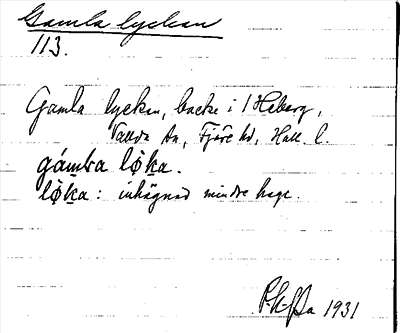 Gamla lyckan
113.
Gamla lyckan, backe i 1 Heberg,
Vallda sn, Fjäre hd, Hall. l.
gámba lø̀ka.
lø̀ka: inhägnad mindre hage.
1931